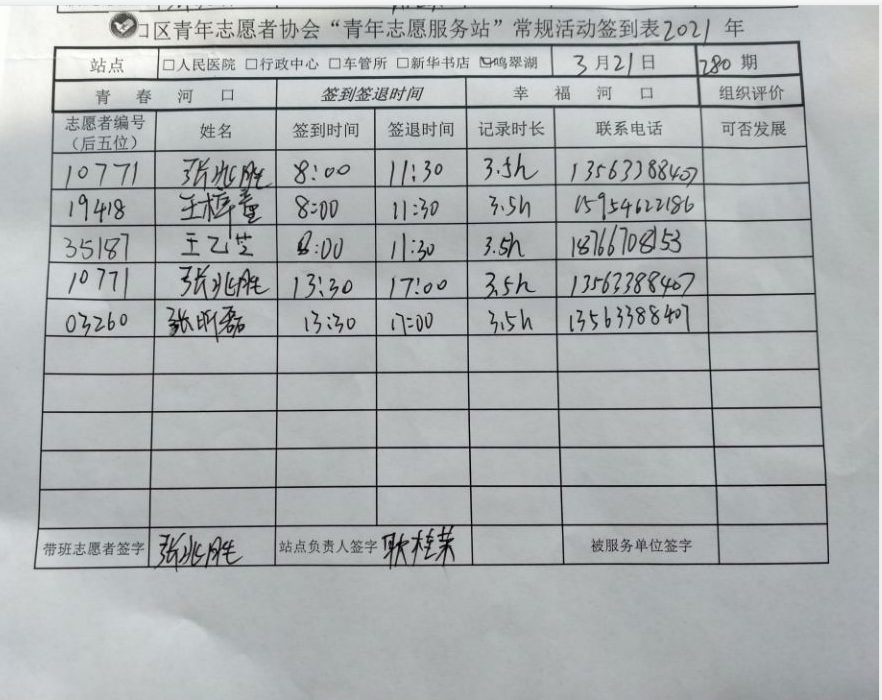 口区青年志愿者协会“青年志愿服务站”常规活动签到表2021年
站点 □人民医院 □行政中心 □车管所 □新华书店 ☑鸣翠湖 3月21日 280期
青春河口 签到签退时间 幸福河口 组织评价
志愿者编号（后五位） 姓名 签到时间 签退时间 记录时长 联系电话 可否发展
10771 张兆胜 8:00 11:30 3.5h 13563388407
19418 王梓童 8:00 11:30 3.5h 15954622186
35187 王乙芝 8:00 11:30 3.5h 18766708153
10771 张兆胜 13:30 17:00 3.5h 13563388407
03260 张昕磊 13:30 17:00 3.5h 13563388407
带班志愿者签字 张兆胜 站点负责人签字 耿桂荣 被服务单位签字